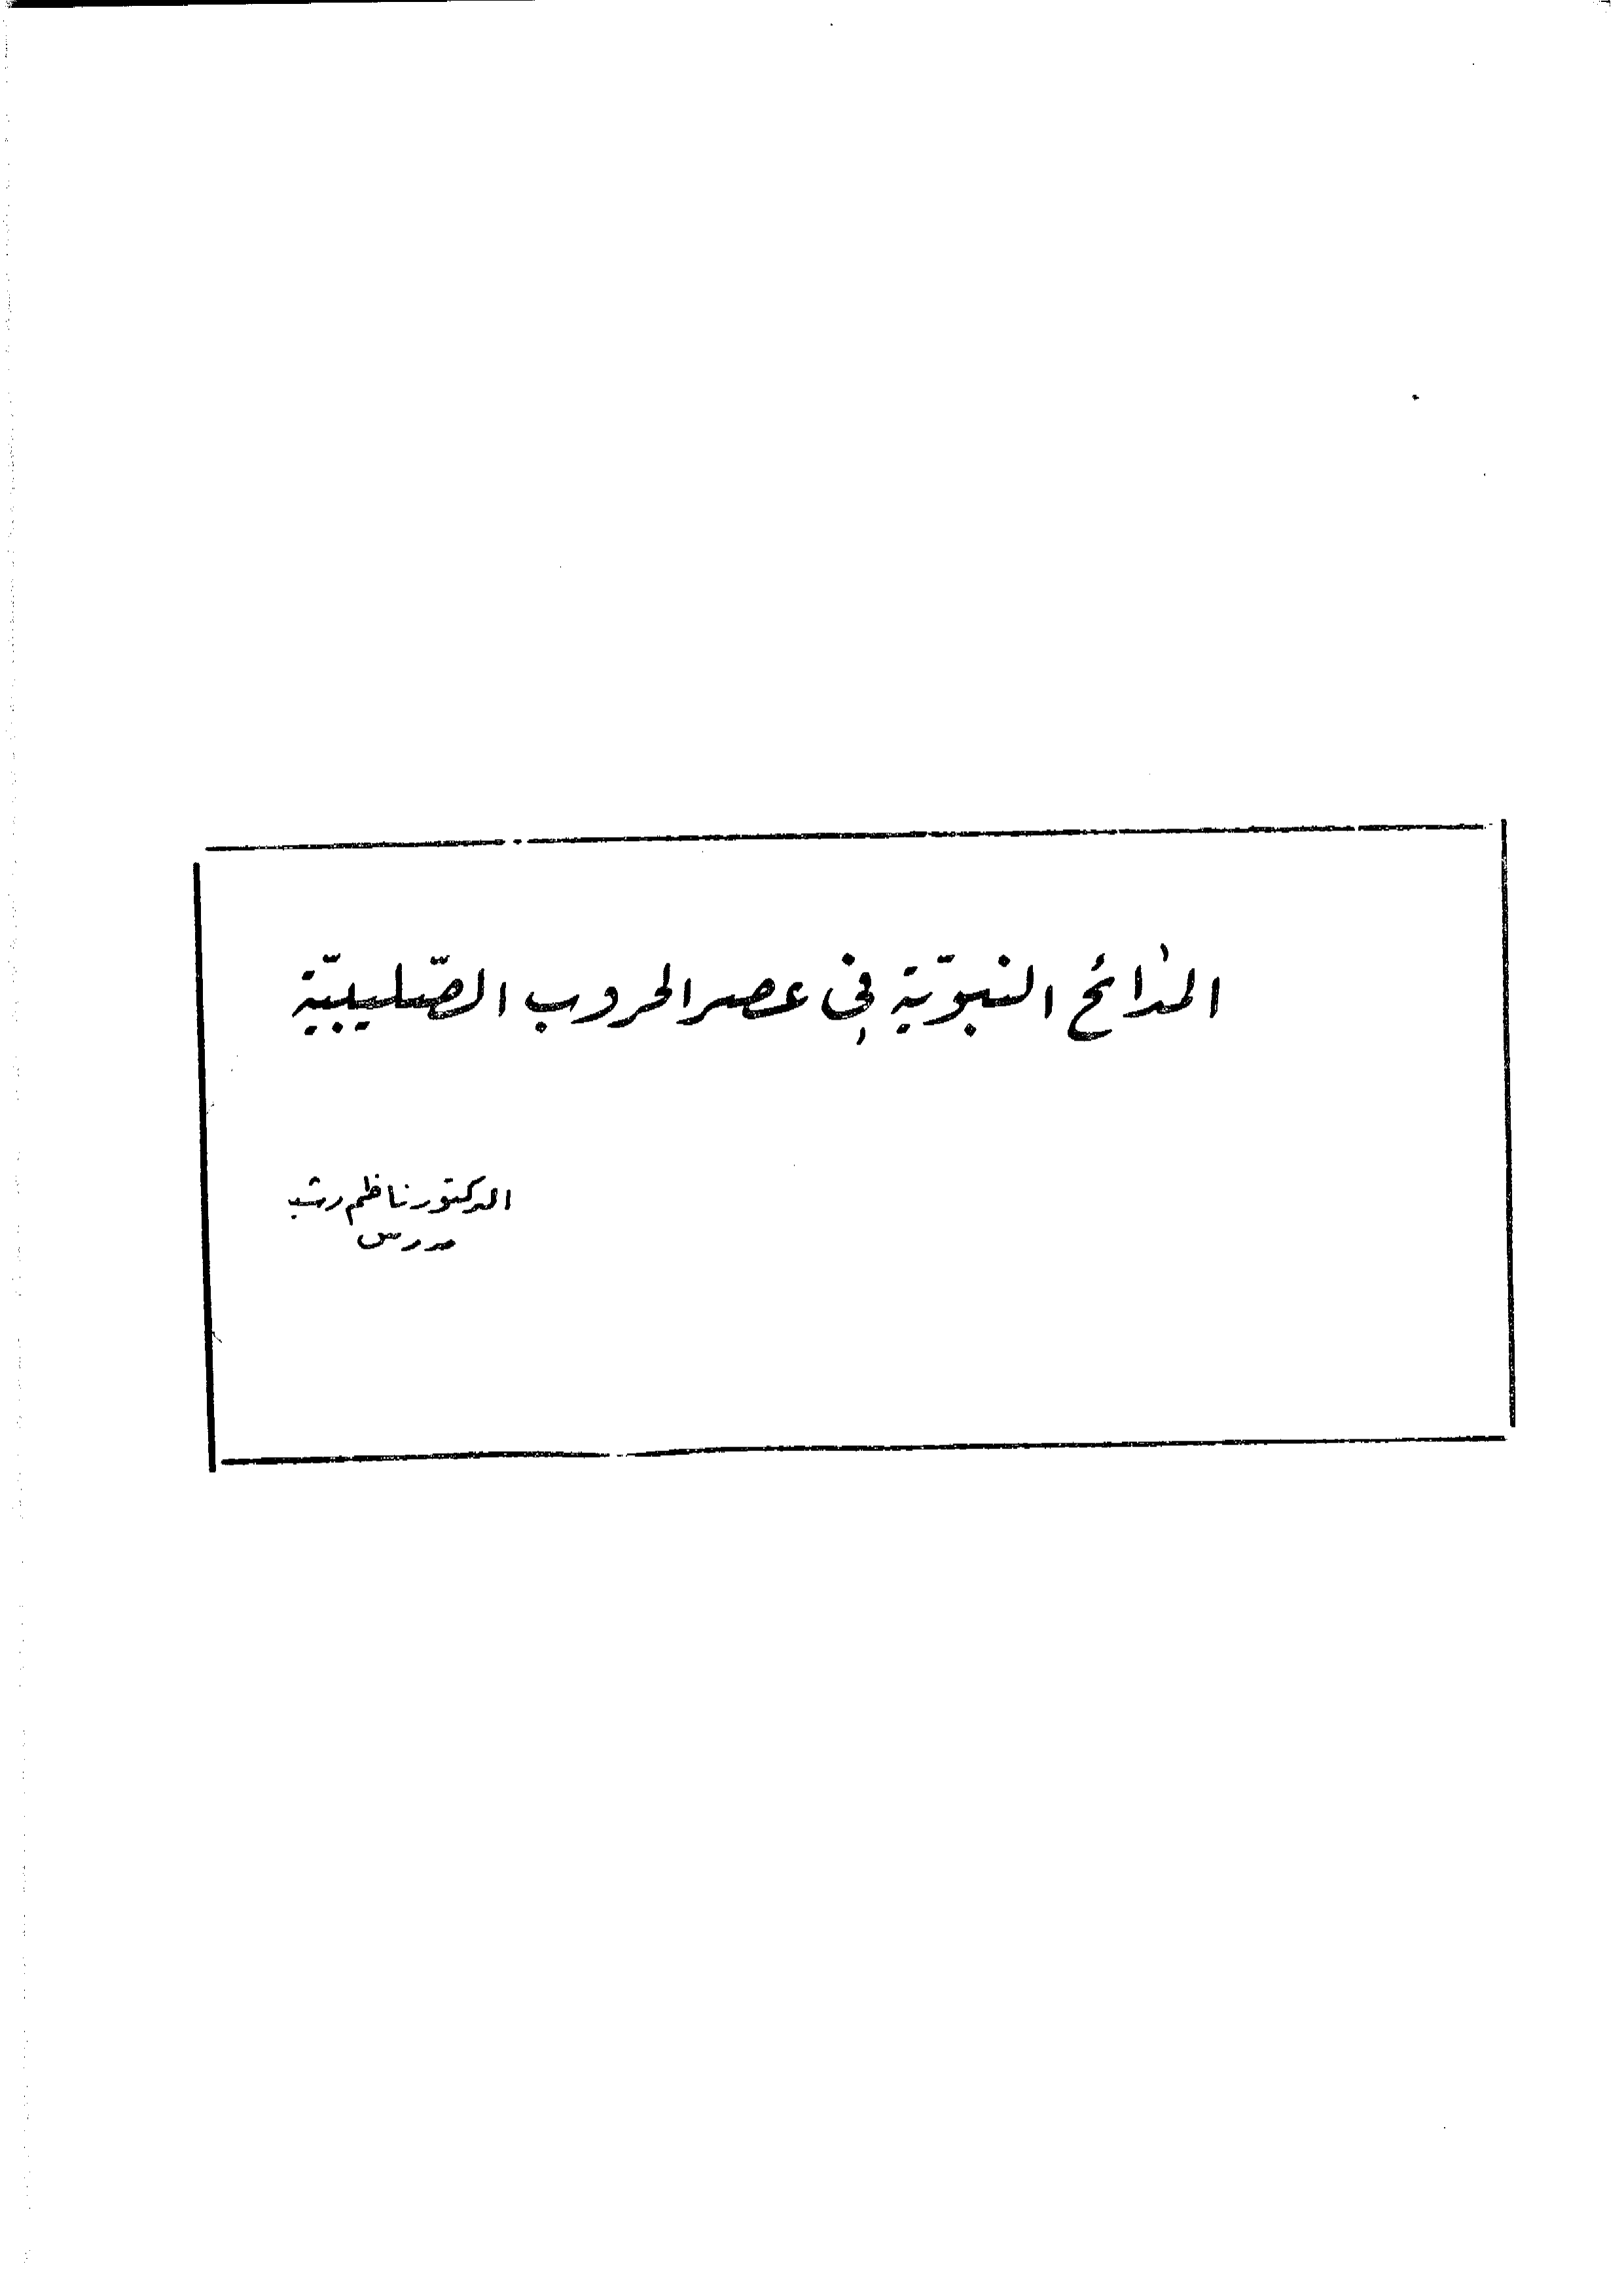 المدائح النبويّة في عصر الحروب الصّليبيّة
الدكتور ناظم رشيد
مدرس